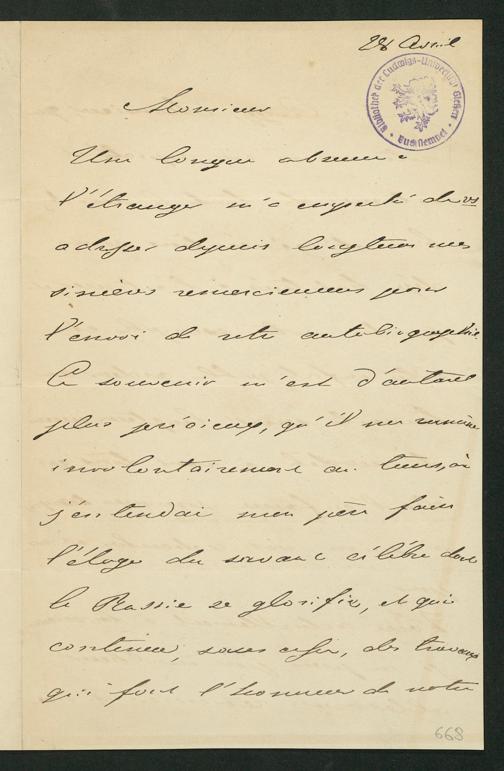 28 Avril
Bibliothek der Ludwigs-Universität Gießen
Buchstempel
Monsieur
Une longue absence à
l'étranger m'a empeché de vs
adresser depuis longtems mes
sincères remerciements pour
l'envoi de votre autobiographie.
Ce souvenir m'est d'autant
plus précieux, qu'il me ramène
involontairement au tems, où
j'entendai mon père faire
l'éloge du savant célèbre dont
la Russie se glorifie, et qui
continue, sans cesse, des travaux
qui font l'honneur de notre
668